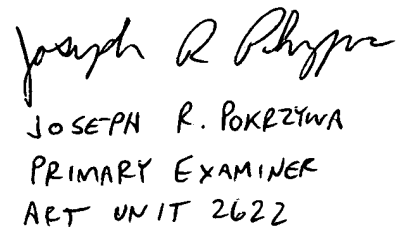 Joseph R Pokrzywa
JOSEPH R. POKRZYWA
PRIMARY EXAMINER
ART UNIT 2622